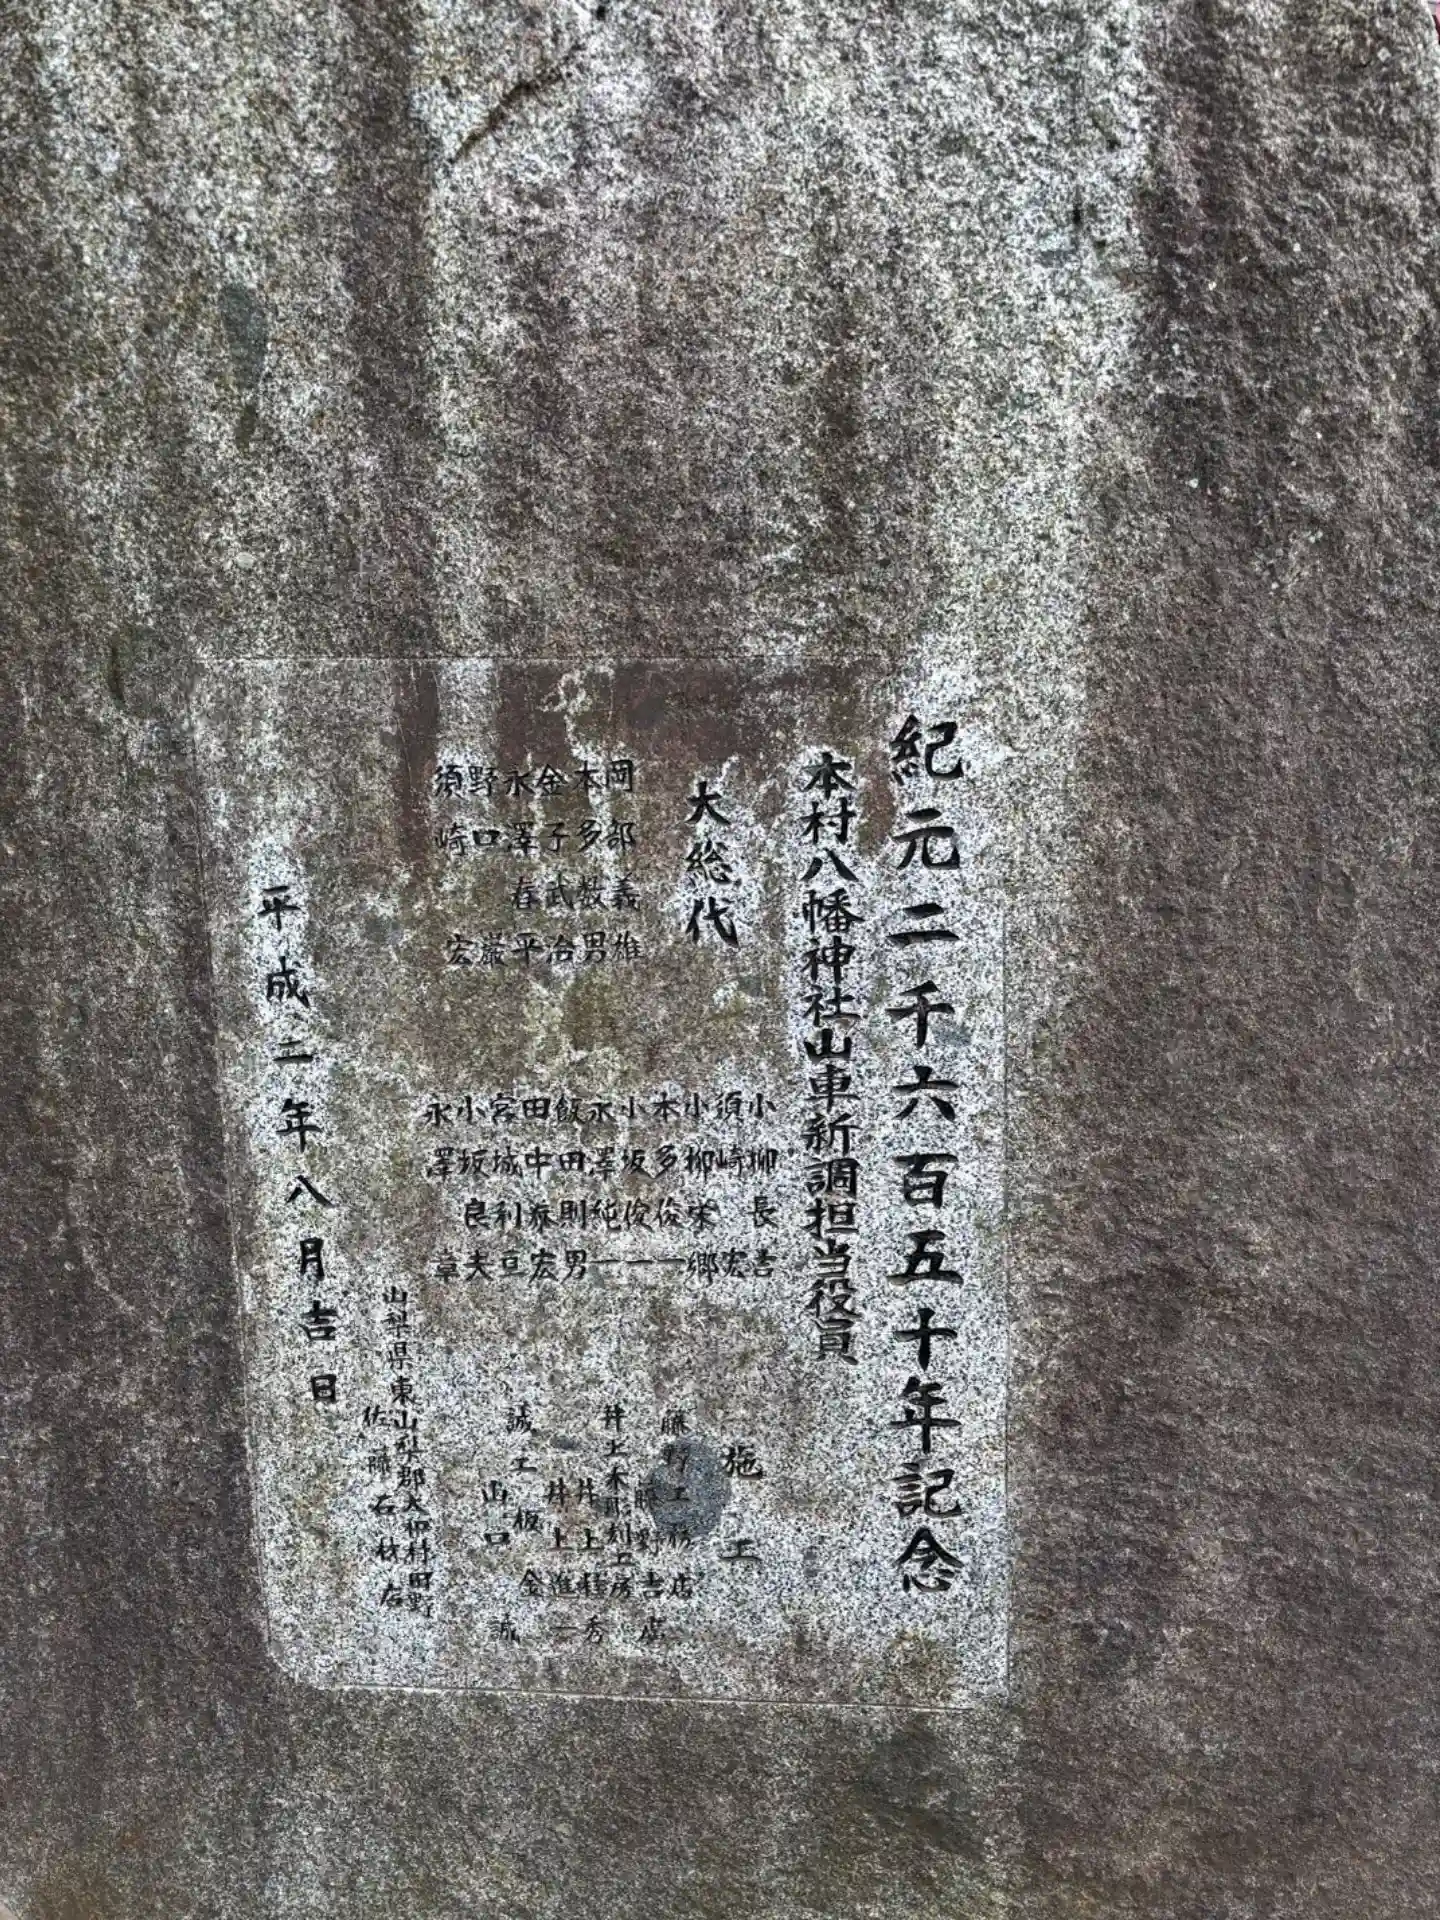 紀元二千六百五十年記念
本村八幡神社山車新調担当役員
大総代
岡部義雄
本多数男
金子武治
永澤春平
野口巌
須崎宏
小柳長吉
須崎宏
小柳栄郷
本多俊一
小坂俊一
永澤純一
飯田則男
田中泰宏
宮城利亘
小坂良夫
永澤章
施工
藤野工務店
藤野吉
井上木彫刻工房
井上秀
井上進一
誠工
板金
山口誠
山梨県東山梨郡大和村田野
佐藤石材店
平成二年八月吉日